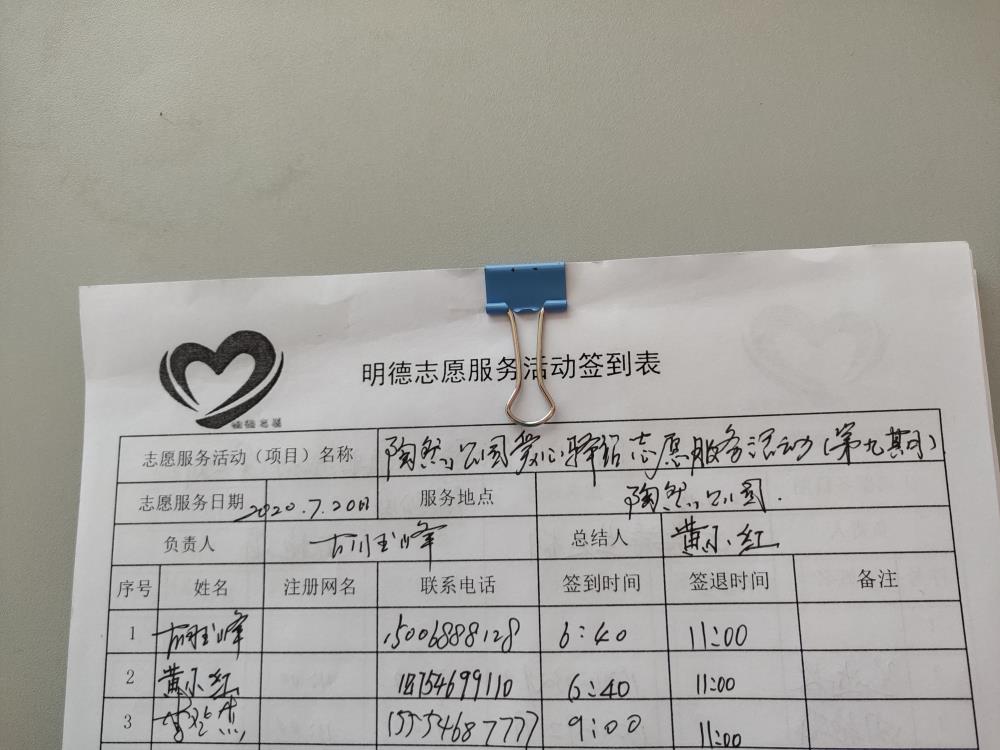 明德志愿服务活动签到表
志愿服务活动（项目）名称 陶然公园爱心驿站志愿服务活动（第九期）
志愿服务日期 2020.7.20日 服务地点 陶然公园.
负责人 胡玉峰 总结人 黄小红
序号 姓名 注册网名 联系电话 签到时间 签退时间 备注
1 胡玉峰 15006888128 6:40 11:00
2 黄小红 18754699110 6:40 11:00
3 15554687777 9:00 11:00